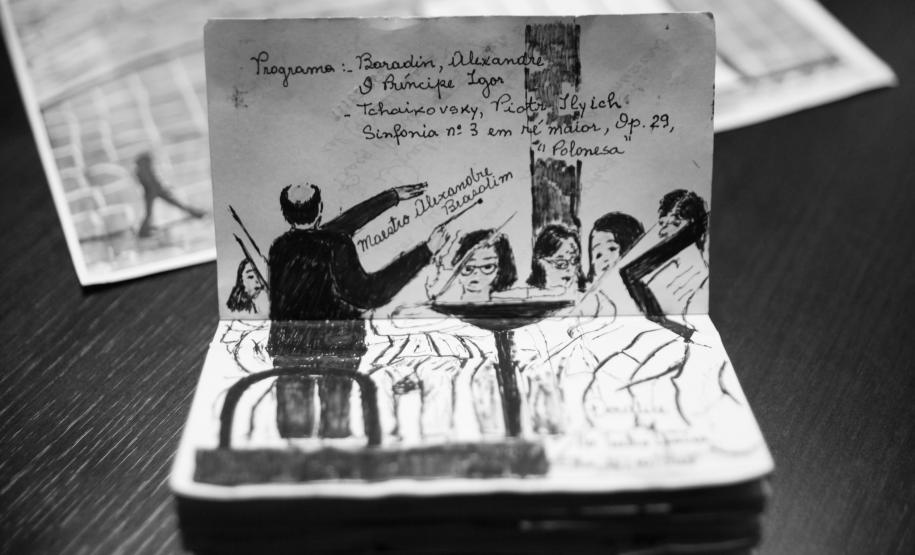 Programa:- Borodin, Alexandre
O Príncipe Igor
- Tchaikovsky, Piotr Ilyich
Sinfonia nº 3 em ré maior, Op. 29,
"Polonesa"
Maestro Alexandre
Brasolim